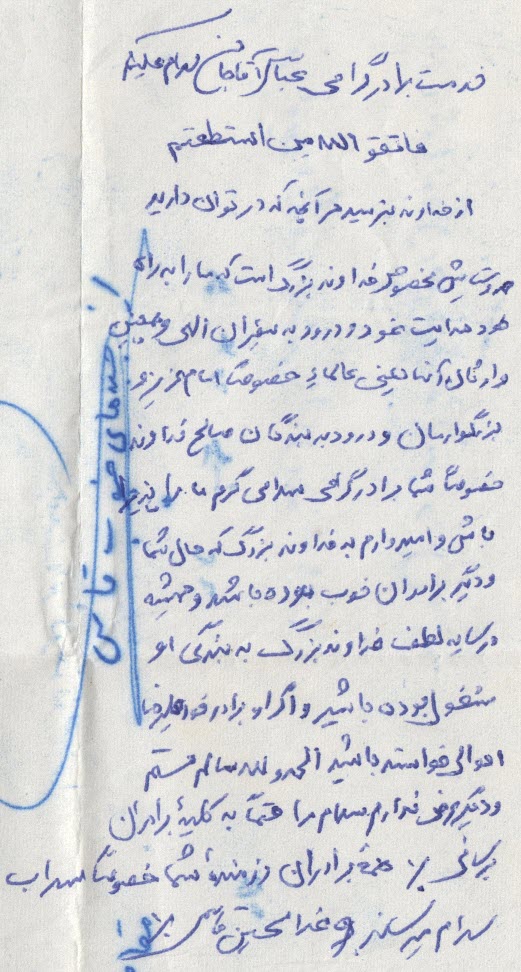 خدمت برادر گرامی عباس آقاجان سلام علیکم
فاتقو الله مین استطعتم
از خداوند بترسید هر آنچه که در توان دارید
حمد و ستایش مخصوص خداوند بزرگ است که ما را به راه
خود هدایت نمود و درود به پیغمبران الهی و همچنین
وارثان آنها یعنی علماء خصوصاً امام عزیز و
بزرگوارمان و درود به بندگان صالح خداوند
خصوصاً شما برادر گرامی سلامی گرم ما را پذیرا
باشی و امیدوارم به خداوند بزرگ که حال شما
و دیگر برادران خوب بوده باشد و همیشه
در سایه لطف خداوند بزرگ به بندگی او
مشغول بوده باشید و اگر از برادر خود علیرضا
احوالی خواسته باشید الحمدو لله سالم هستم
و دیگر عرضی ندارم سلام مرا حتماً به کلیهٔ برادران
برسانی همهٔ برادران رزمندهٔ شما خصوصاً سهراب
سلام میرسانند و غلامحسین